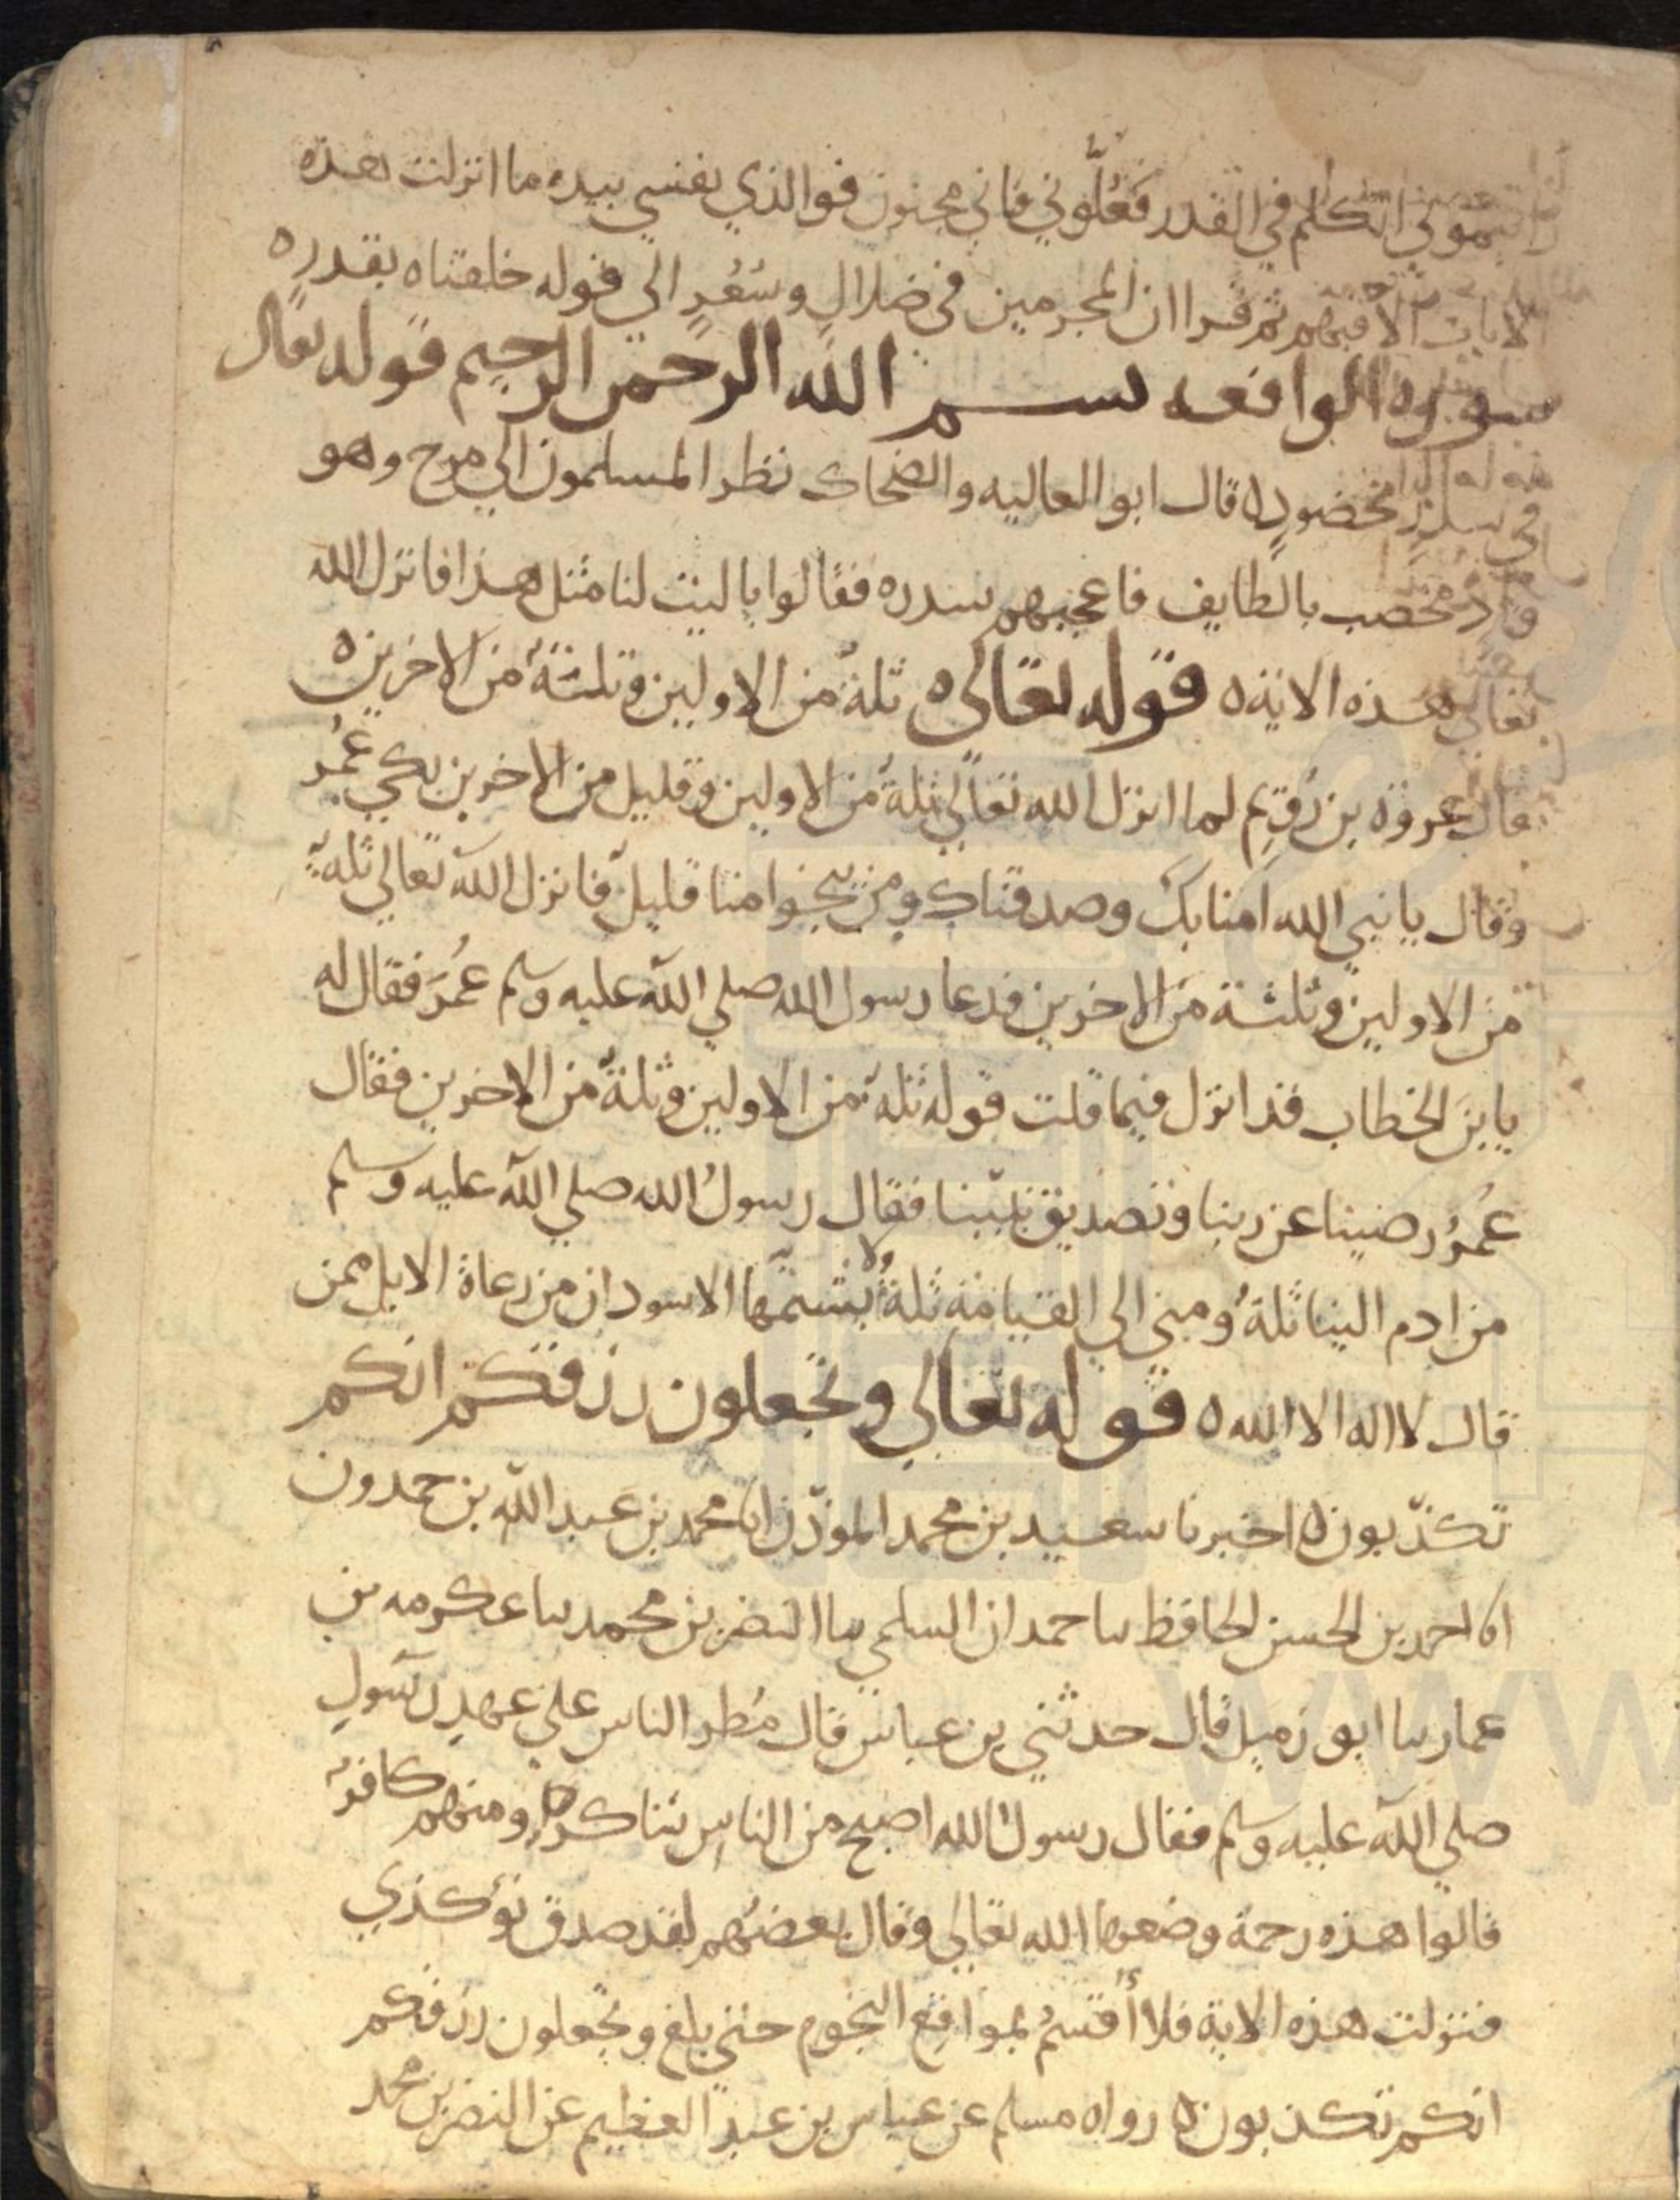 رايتموني اتكلم في القدر فغلوني فاني مجنون فوالذي نفسي بيده ما انزلت هذه
الايات الا فيهم ثم قرا ان المجرمين في ضلال وسعر الي قوله خلقناه بقدر ه
سوره الواقعه بسم الله الرحمن الرحيم قوله تعالي
في سدر مخضود ه قال ابو العاليه والضحاك نظر المسلمون الي مرج وهو
واد مخصب بالطايف فاعجبهم سدره فقالوا ياليت لنا مثل هذا فانزل الله
تعالي هذه الاية ه قوله تعالي ه ثلة من الاولين وثلثة من الاخرين ه
قال عروة بن رُقيم لما انزل الله تعالي ثلة من الاولين وقليل من الاخرين بكي عُمر
وقال يا نبي الله آمنا بك وصدقناك ومن ينجوا منا قليل فانزل الله تعالي ثلة
من الاولين وثلثة من الاخرين فدعا رسول الله صلي الله عليه وسلم عُمَر فقال له
يا بن الخطاب قد انزل فيما قلت قوله ثلة من الاولين وثلة من الاخرين فقال
عُمرُ رضينا عن ربنا وتصديق نبينا فقال رسولُ الله صلي الله عليه وسلم
من ادم الينا ثلةُ ومني الي القيامة ثلةُ ولا يستتمها الا سودان من رعاة الابل ممن
قال لا اله الا الله ه قوله تعالي وتجعلون رزقكم انكم
تكذّبون ه اخبرنا سعيد بن محمد الموذّن انا محمد بن عبد الله بن حمدون
انا احمد بن الحسن الحافظ نا حمدان السلمي نا النضر بن محمد نا عكرمه بن
عمار نا ابو زميل قال حدثني بن عباس قال مُطر الناس علي عهد رسول
صلي الله عليه وسلم فقال رسول الله اصبح من الناس شاكر ومنهم كافر
قالوا هذه رحمة وضعها الله تعالي وقال بعضهم لقد صدق نؤ كذي
فنزلت هذه الاية فلا أُقسمُ بمواقع النجوم حتي بلغ وتجعلون رزقكم
انكم تكذبون ه رواه مسلم عن عباس بن عبد العظيم عن النضر بن محمد